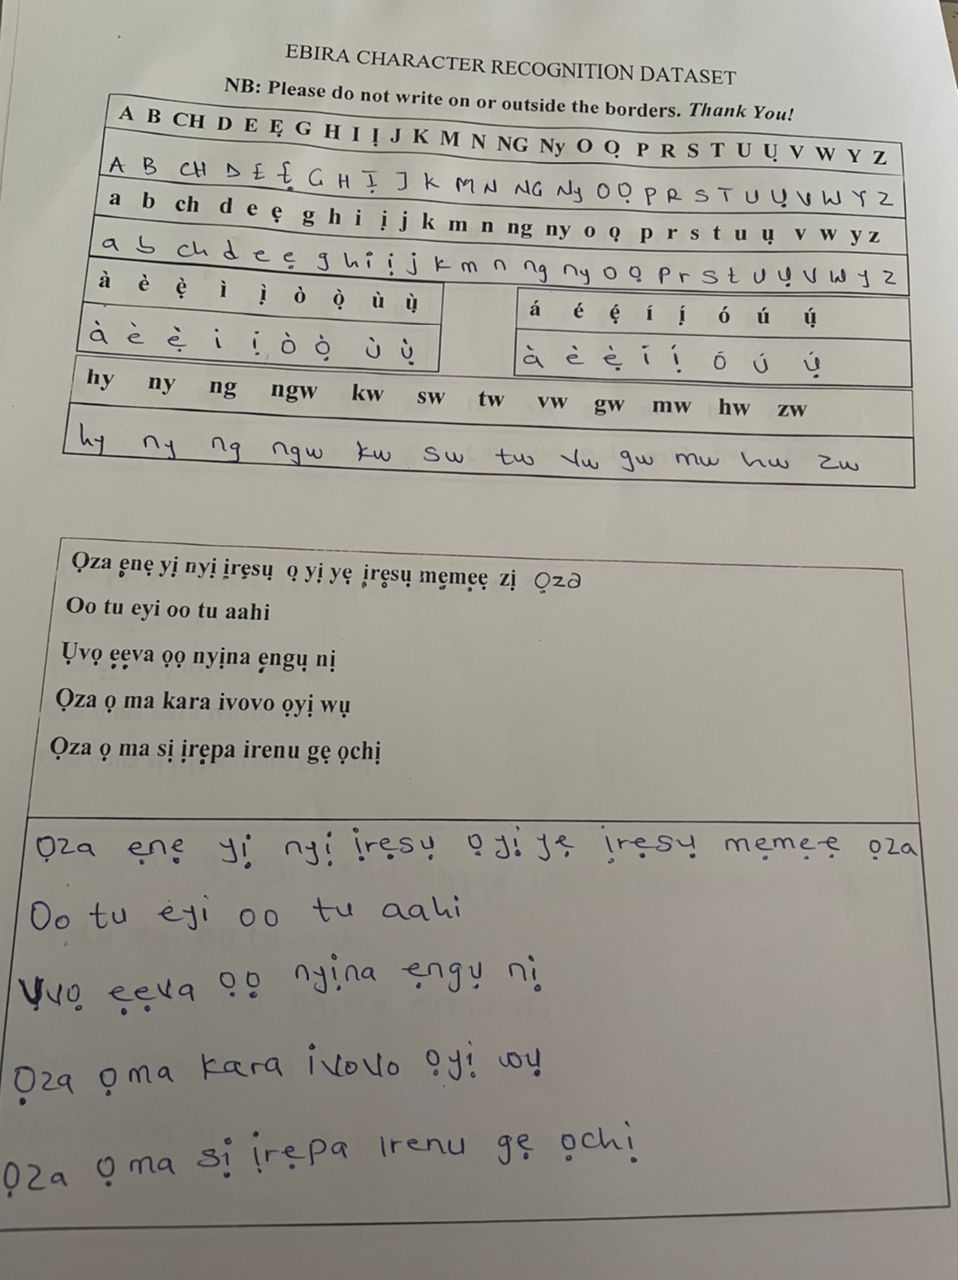 EBIRA CHARACTER RECOGNITION DATASET
NB: Please do not write on or outside the borders. Thank You!
A B CH D E Ẹ G H I Ị J K M N NG Ny O Ọ P R S T U Ụ V W Y Z
A B CH D E Ẹ G H Ị J K M N NG Ny O Ọ P R S T U Ụ V W Y Z
a b ch d e ẹ g h i ị j k m n ng ny o ọ p r s t u ụ v w y z
a b ch d e ẹ g h i ị j k m n ng ny o ọ p r s t u ụ v w y z
à è ẹ̀ ì ị̀ ò ọ̀ ù ụ̀ á é ẹ́ í ị́ ó ú ụ́
à è ẹ̀ i ị ò ọ̀ ù ụ̀ à è ẹ̀ í ị́ ó ú ụ́
hy ny ng ngw kw sw tw vw gw mw hw zw
hy ny ng ngw kw sw tw vw gw mw hw zw
Ọza ẹnẹ yị nyị ịrẹsụ ọ yị yẹ ịrẹsụ mẹmẹẹ zị Ọza
Oo tu eyi oo tu aahi
Ụvọ ẹẹva ọọ nyịna ẹngụ nị
Ọza ọ ma kara ivovo ọyị wụ
Ọza ọ ma sị ịrẹpa irenu gẹ ọchị
Ọza ẹnẹ yị nyị ịrẹsụ ọ yị yẹ ịrẹsụ mẹmẹẹ ọza
Oo tu eyi oo tu aahi
Ụvọ ẹẹva ọọ nyịna ẹngụ nị
Ọza ọ ma kara ivovo ọyị wụ
Ọza ọ ma sị ịrẹpa irenu gẹ ọchị